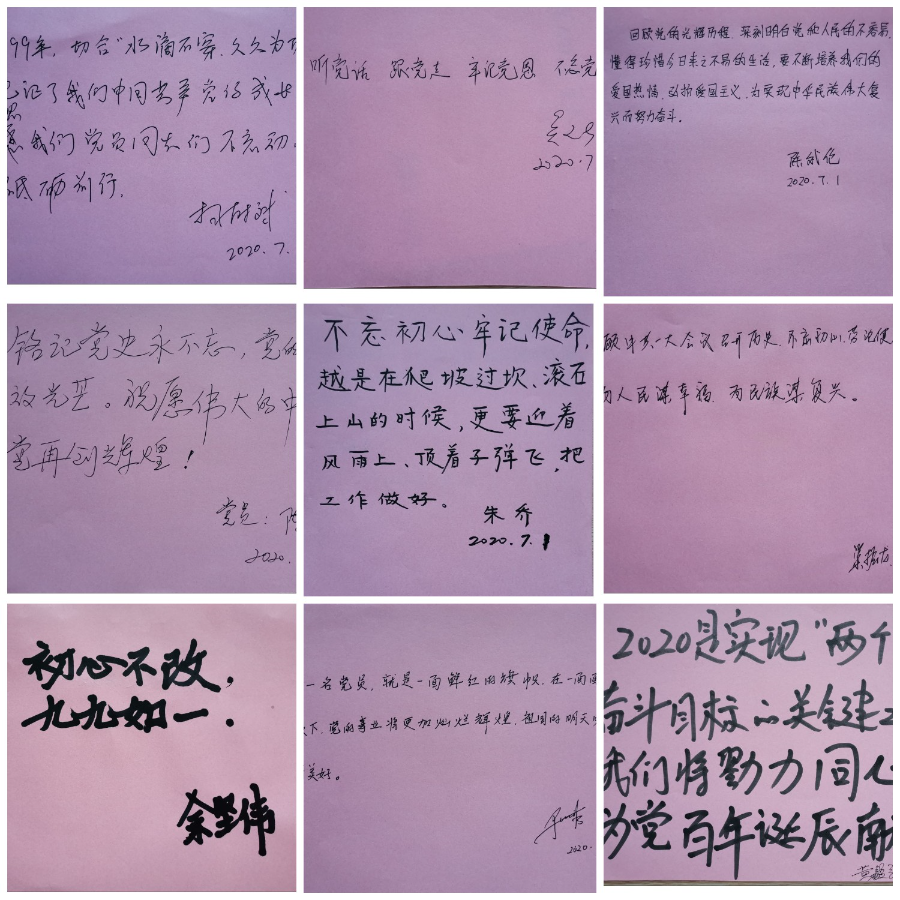 99年，切合“水滴石穿，久久为功
已证了我们中国共产党的成长
愿我们党员同志们不忘初心
砥砺前行。
2020.7.
听党话 跟党走 牢记党恩 不忘党
2020.7
回顾党的光辉历程，深刻明白党和人民的不容易，
懂得珍惜今日来之不易的生活，要不断培养我们的
爱国热情，弘扬爱国主义，为实现中华民族伟大复
兴而努力奋斗。
2020.7.1
铭记党史永不忘，党的
放光芒。祝愿伟大的中
党再创辉煌！
党员：陈
2020.
不忘初心牢记使命，
越是在爬坡过坎、滚石
上山的时候，更要迎着
风雨上、顶着子弹飞，把
工作做好。
朱乔
2020.7.1
顾中共一大会议召开历史，不忘初心，牢记使
为人民谋幸福，为民族谋复兴。
初心不改，
九九如一．
余坚伟
一名党员，就是一面鲜红的旗帜，在一面面
下，党的事业将更加灿烂辉煌，祖国的明天
美好。
2020.
2020是实现“两个
奋斗目标的关键之
我们将勠力同心
为党百年诞辰献